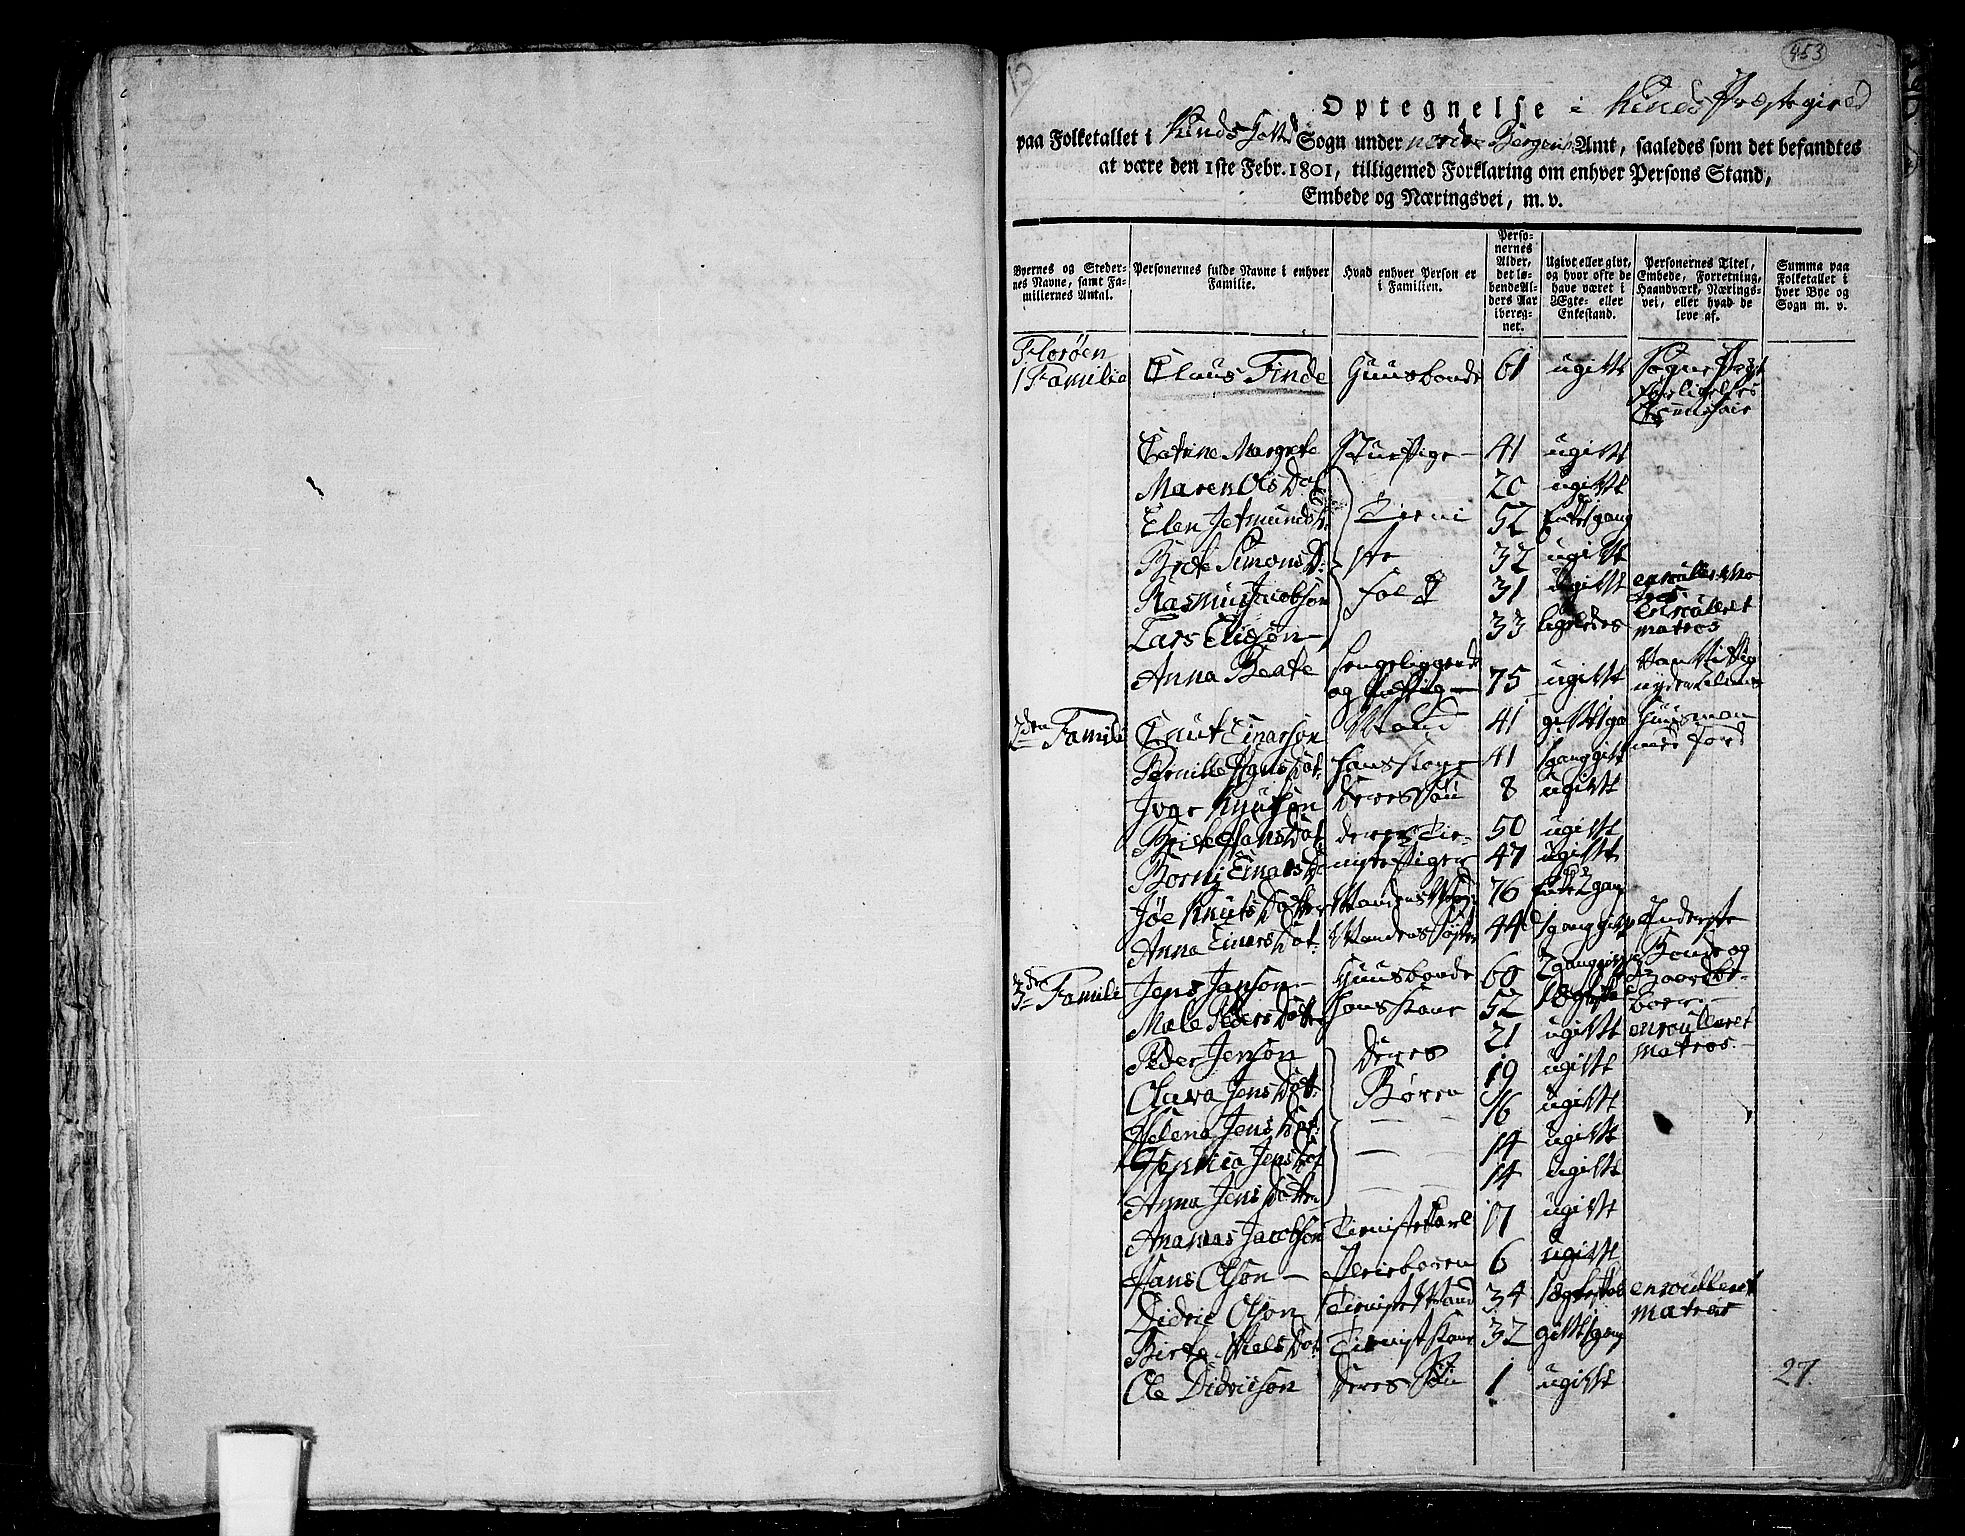 453
12
Optegnelse i Kinds Præstegield
paa Folketallet i Kinds Hovd Sogn under nordre Bergens Amt, saaledes som det befandtes
at være den 1ste Febr. 1801, tilligemed Forklaring om enhver Persons Stand,
Embede og Næringsvei, m. v.
Byernes og Stedernes Navne, samt Familiernes Antal. Personernes fulde Navne i enhver Familie. Hvad enhver Person er i Familien. Personernes Alder, det løbende Alders Aar iberegnet. Ugivt eller givt, og hvor ofte de have været i Ægte- eller Enkestand. Personernes Titel, Embede, Forretning, Haandværk, Næringsvei, eller hvad de leve af. Summa paa Folketallet i hver Bye og Sogn m. v.
Florøen
1 Familie Claus Finde Huusbonde 61 ugivt Sogne Fogt
Forligelses
Catrine Margrete 41 ugivt
Maren Ols Dot 20 ugivt
Elen Jetmunds Tieni 52 Enke 1 gang
Birte Simons D: ste 32 ugivt
Rasmus Jacobson Folk 31 ugivt enroulleret Ma
tros
Lars Elisøn 33 ligeledes enroulleret
matros
Anna Beate sengeliggende 75 ugivt
og
nyder
2den Famili Cnut Einarsøn Mand 41 givt 1 ga Huusman
med Jord
Pernille Hans Dot: hans Kone 41 1 gang givt
Ivar Knutsøn deres Søn 8 ugivt
Birte Hans Dot deres Tie- 50 ugivt
Borni Einars D nistepiger 47 ugivt
Joe Knuts Dotter Mandens Moder 76 Enke 2 gang
Anna Einers Dot: Mandens Søster 44 1 gang givt Inderste
3de Famili Jens Janson Huusbonde 60 2 gang Bonde og
Male Peders Dotter hans Kone 52
Peder Jenson deres 21 ugivt enroulleret
matros
Clara Jens Dot: Børen 19 ugivt
Helena Jens Dot: 16 ugivt
Jens Dot 14 ugivt
Anna Jens Dotter 14 ugivt
Ananias Jacobson Tieniste Karl 17 ugivt
Hans Olson 6 ugivt
Didric Olson Tieniste Mand 34 enroulleret
matros
Birte Niels Dot Tienist Kone 32 givt 1 gang
Ole Didricson deres Søn 1 ugivt 27.